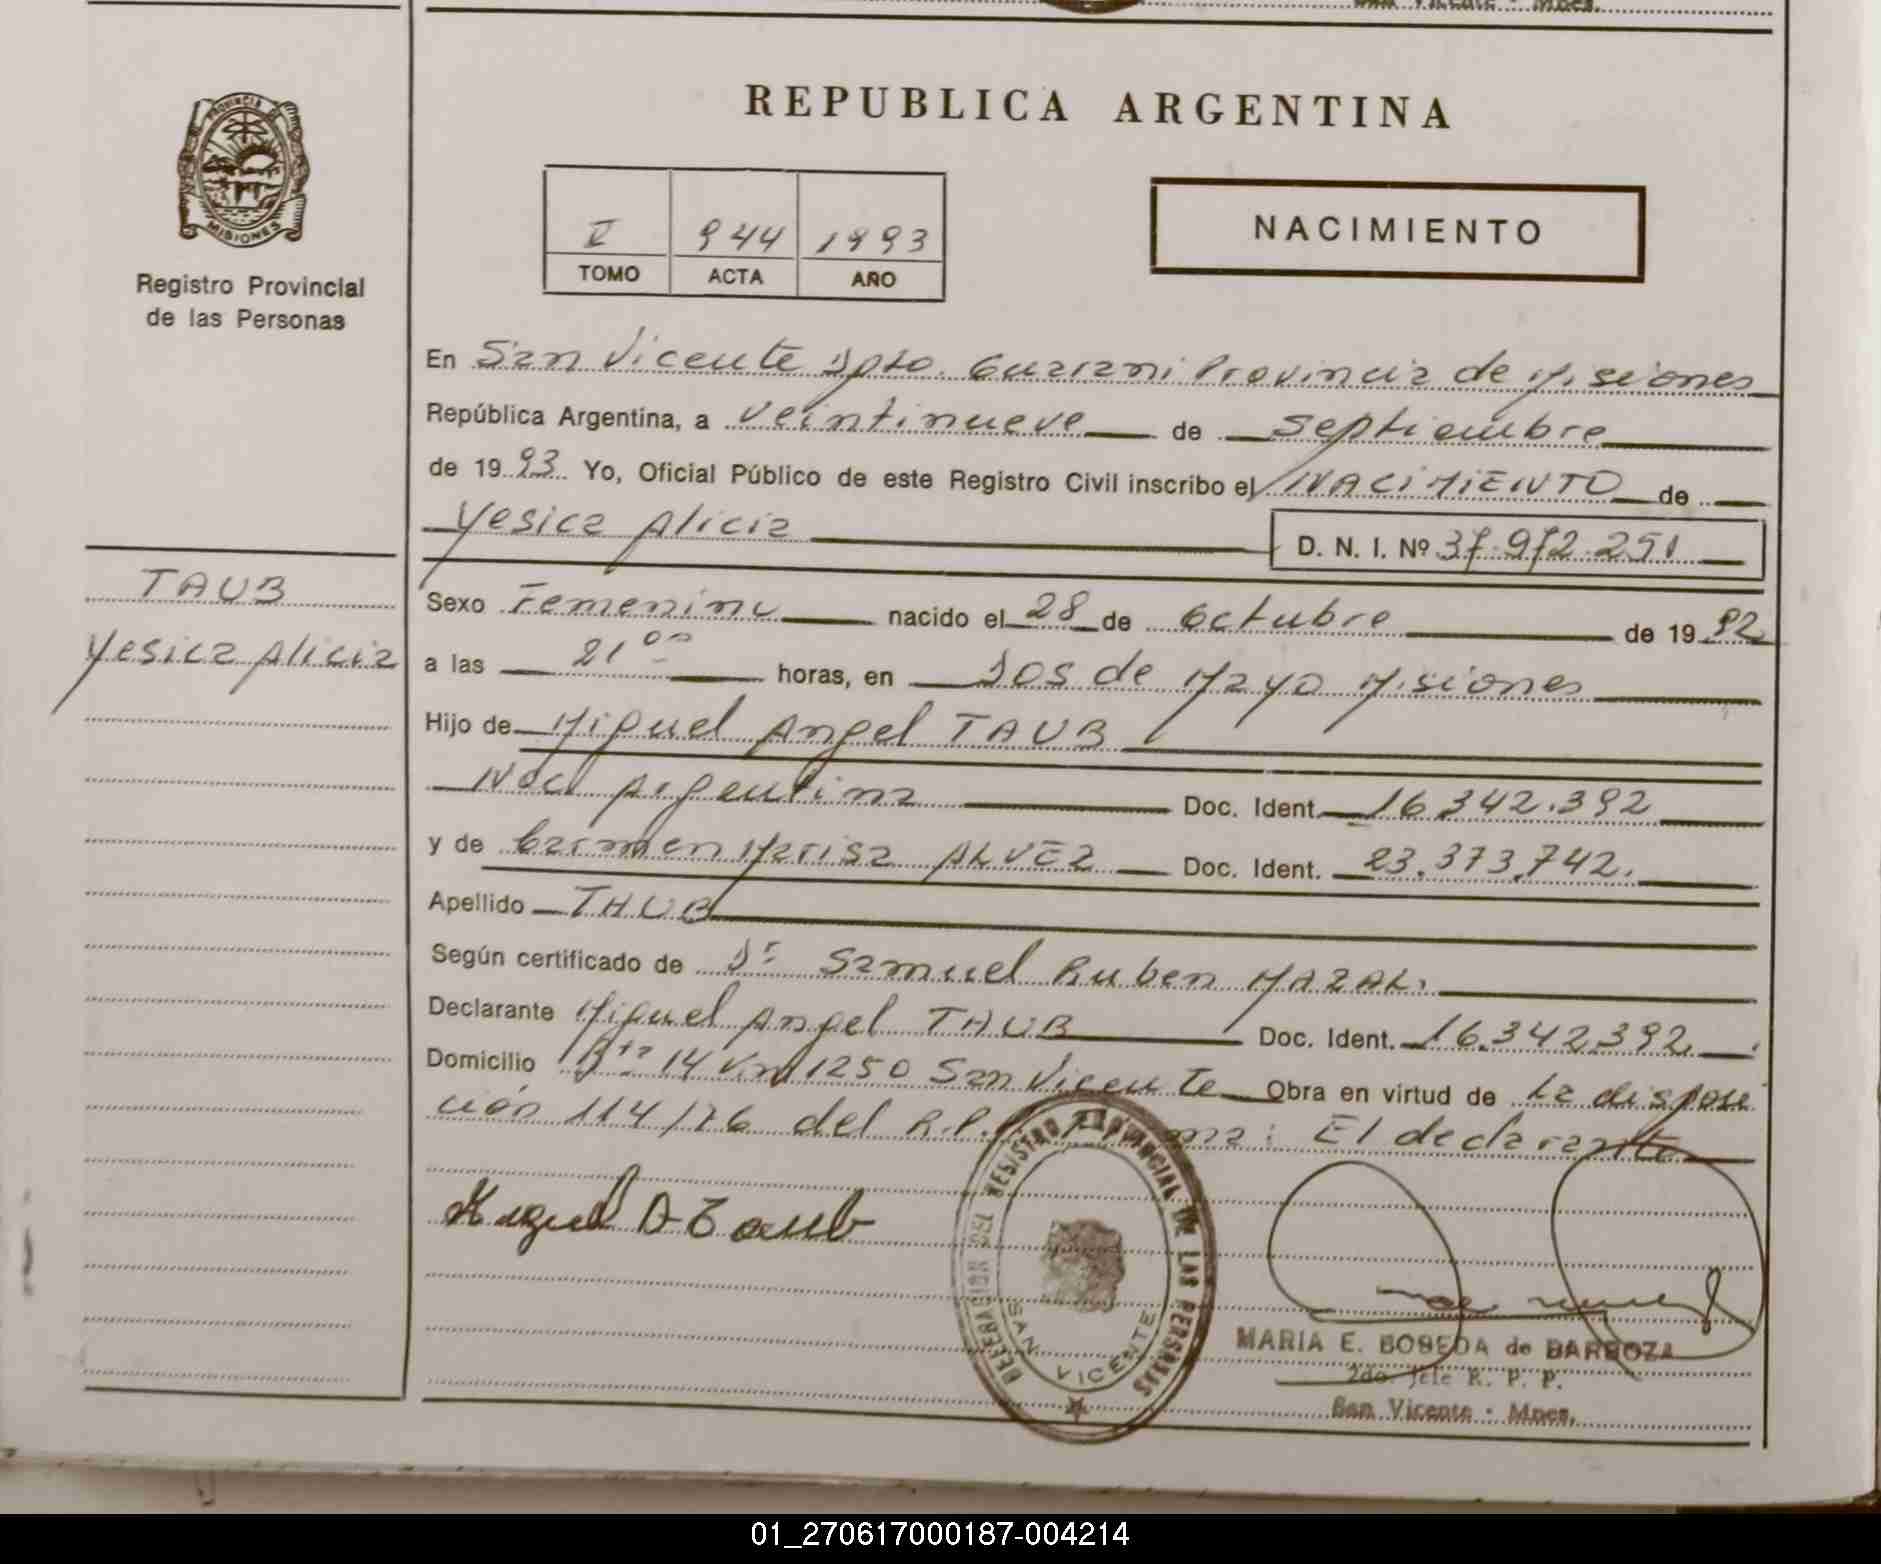 San Vicente - Mnes.
PROVINCIA DE
MISIONES
Registro Provincial
de las Personas
REPUBLICA ARGENTINA
944 1993
TOMO ACTA AÑO
NACIMIENTO
En San Vicente Dpto. Guarani Provincia de Misiones
República Argentina, a veintinueve de septiembre
de 1993 Yo, Oficial Público de este Registro Civil inscribo el NACIMIENTO de
Yesica Alicia D. N. I. Nº 37.972.251
TAUB
Yesica Alicia
Sexo Femenino nacido el 28 de Octubre de 1992
a las 21 00 horas, en Dos de Mayo Misiones
Hijo de Miguel Angel TAUB
Nac. Argentina Doc. Ident. 16.342.392
y de Carmen Marisa ALVEZ Doc. Ident. 23.373.742.
Apellido TAUB
Según certificado de Dr Samuel Ruben MAZAL.
Declarante Miguel Angel TAUB Doc. Ident. 16.342.392
Domicilio Rta 14 Km 1250 San Vicente Obra en virtud de La disposi
ción 114/76 del R.P. El declarante
Miguel A Taub
DELEGACION DEL REGISTRO PROVINCIAL DE LAS PERSONAS
SAN VICENTE
MARIA E. BOBEDA de BARBOZA
2do. Jefe R. P. P.
San Vicente - Mnes.
01_270617000187-004214